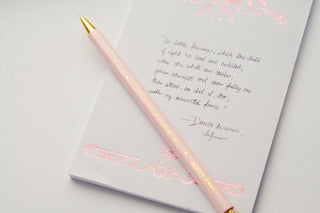 "As little flowers, which the chill
of night has bent and huddled,
when the white sun strikes,
grow straight and open fully on
their stems, so did I, too,
with my exhausted force."
—DANTE ALIGHIERI,
Inferno